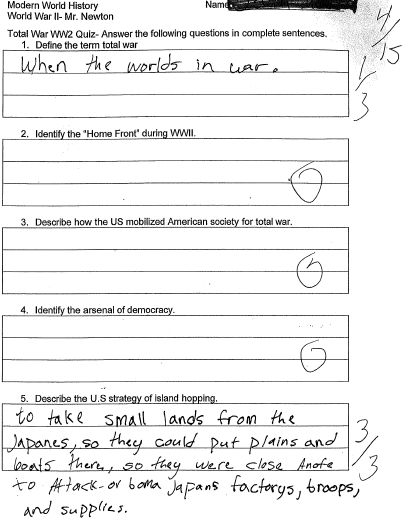 Modern World History
Name
World War II- Mr. Newton
4/15
Total War WW2 Quiz- Answer the following questions in complete sentences.
1. Define the term total war
When the worlds in war.
1/3
2. Identify the "Home Front" during WWII.
0
3. Describe how the US mobilized American society for total war.
0
4. Identify the arsenal of democracy.
0
5. Describe the U.S strategy of island hopping.
to take small lands from the
Japanes, so they could put plains and
boats there, so they were close Anofe
to Attack or bomb Japans factorys, troops,
and supplies.
3/3